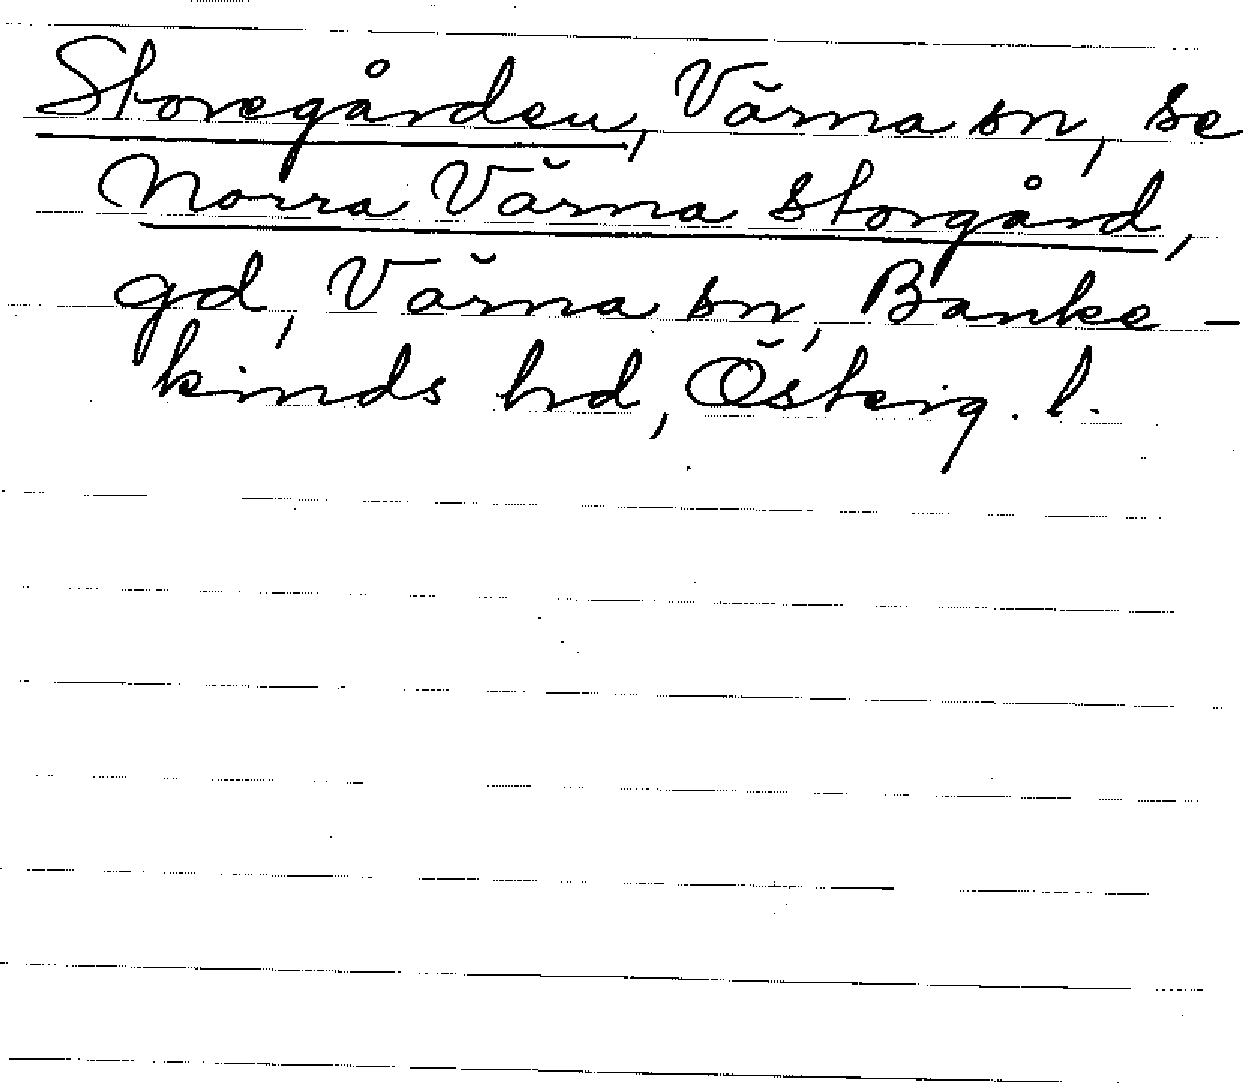 Storegården, Värna sn, se
Norra Värna Storgård,
gd, Värna sn, Banke-
kinds hd, Österg. l.